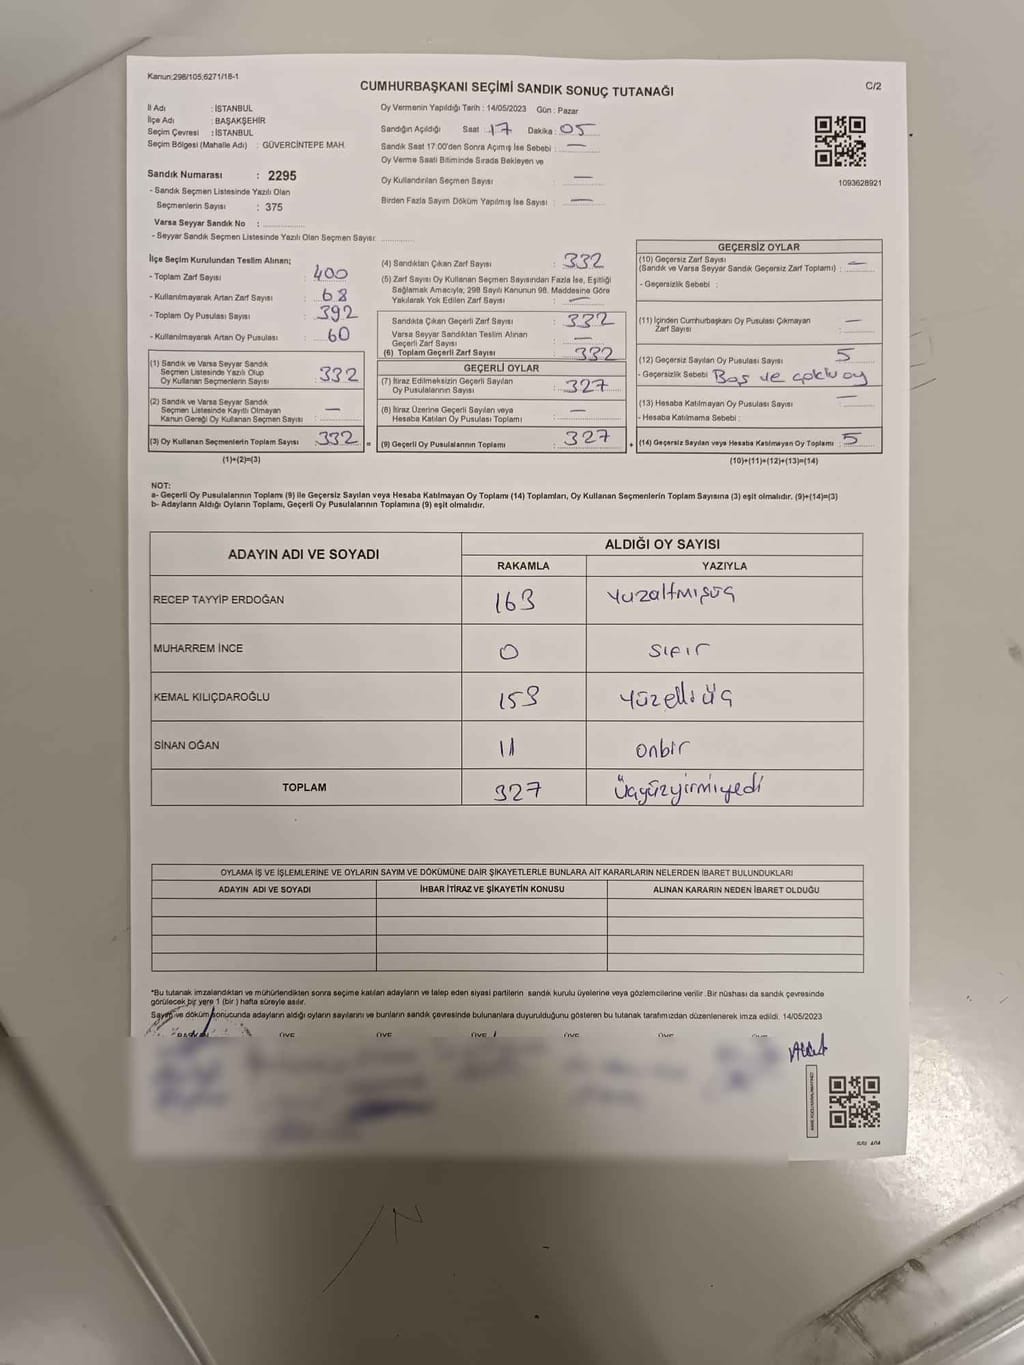 Kanun:298/105,6271/18-1
CUMHURBAŞKANI SEÇİMİ SANDIK SONUÇ TUTANAĞI
C/2
İl Adı : İSTANBUL
İlçe Adı : BAŞAKŞEHİR
Seçim Çevresi : İSTANBUL
Seçim Bölgesi (Mahalle Adı) : GÜVERCİNTEPE MAH.
Oy Vermenin Yapıldığı Tarih : 14/05/2023 Gün : Pazar
Sandığın Açıldığı Saat 17 Dakika : 05
Sandık Saat 17:00'den Sonra Açımış İse Sebebi : —
Oy Verme Saati Bitiminde Sırada Bekleyen ve
Oy Kullandırılan Seçmen Sayısı : —
Birden Fazla Sayım Döküm Yapılmış İse Sayısı : —
1093628921
Sandık Numarası : 2295
- Sandık Seçmen Listesinde Yazılı Olan
Seçmenlerin Sayısı : 375
Varsa Seyyar Sandık No :
- Seyyar Sandık Seçmen Listesinde Yazılı Olan Seçmen Sayısı:
İlçe Seçim Kurulundan Teslim Alınan;
- Toplam Zarf Sayısı : 400
- Kullanılmayarak Artan Zarf Sayısı : 68
- Toplam Oy Pusulası Sayısı : 392
- Kullanılmayarak Artan Oy Pusulası : 60
(1) Sandık ve Varsa Seyyar Sandık
Seçmen Listesinde Yazılı Olup
Oy Kullanan Seçmenlerin Sayısı : 332
(2) Sandık ve Varsa Seyyar Sandık
Seçmen Listesinde Kayıtlı Olmayan
Kanun Gereği Oy Kullanan Seçmen Sayısı : —
(3) Oy Kullanan Seçmenlerin Toplam Sayısı : 332 =
(1)+(2)=(3)
(4) Sandıktan Çıkan Zarf Sayısı : 332
(5) Zarf Sayısı Oy Kullanan Seçmen Sayısından Fazla İse, Eşitliği
Sağlamak Amacıyla, 298 Sayılı Kanunun 98. Maddesine Göre
Yakılarak Yok Edilen Zarf Sayısı : —
Sandıkta Çıkan Geçerli Zarf Sayısı : 332
Varsa Seyyar Sandıktan Teslim Alınan
Geçerli Zarf Sayısı : —
(6) Toplam Geçerli Zarf Sayısı : 332
GEÇERLİ OYLAR
(7) İtiraz Edilmeksizin Geçerli Sayılan
Oy Pusulalarının Sayısı : 327
(8) İtiraz Üzerine Geçerli Sayılan veya
Hesaba Katılan Oy Pusulası Toplamı : —
(9) Geçerli Oy Pusulalarının Toplamı : 327 +
GEÇERSİZ OYLAR
(10) Geçersiz Zarf Sayısı
(Sandık ve Varsa Seyyar Sandık Geçersiz Zarf Toplamı) : —
- Geçersizlik Sebebi :
(11) İçinden Cumhurbaşkanı Oy Pusulası Çıkmayan
Zarf Sayısı : —
(12) Geçersiz Sayılan Oy Pusulası Sayısı : 5
- Geçersizlik Sebebi : Boş ve çoklu oy
(13) Hesaba Katılmayan Oy Pusulası Sayısı : —
- Hesaba Katılmama Sebebi :
(14) Geçersiz Sayılan veya Hesaba Katılmayan Oy Toplamı : 5
(10)+(11)+(12)+(13)=(14)
NOT:
a- Geçerli Oy Pusulalarının Toplamı (9) ile Geçersiz Sayılan veya Hesaba Katılmayan Oy Toplamı (14) Toplamları, Oy Kullanan Seçmenlerin Toplam Sayısına (3) eşit olmalıdır. (9)+(14)=(3)
b- Adayların Aldığı Oyların Toplamı, Geçerli Oy Pusulalarının Toplamına (9) eşit olmalıdır.
ADAYIN ADI VE SOYADI ALDIĞI OY SAYISI
RAKAMLA YAZIYLA
RECEP TAYYİP ERDOĞAN 163 Yüzaltmışüç
MUHARREM İNCE 0 Sıfır
KEMAL KILIÇDAROĞLU 153 Yüzelliüç
SİNAN OĞAN 11 onbir
TOPLAM 327 Üçyüzyirmiyedi
OYLAMA İŞ VE İŞLEMLERİNE VE OYLARIN SAYIM VE DÖKÜMÜNE DAİR ŞİKAYETLERLE BUNLARA AİT KARARLARIN NELERDEN İBARET BULUNDUKLARI
ADAYIN ADI VE SOYADI İHBAR İTİRAZ VE ŞİKAYETİN KONUSU ALINAN KARARIN NEDEN İBARET OLDUĞU
*Bu tutanak imzalandıktan ve mühürlendikten sonra seçime katılan adayların ve talep eden siyasi partilerin sandık kurulu üyelerine veya gözlemcilerine verilir .Bir nüshası da sandık çevresinde
görülecek bir yere 1 (bir ) hafta süreyle asılır.
Sayım ve döküm sonucunda adayların aldığı oyların sayılarını ve bunların sandık çevresinde bulunanlara duyurulduğunu gösteren bu tutanak tarafımızdan düzenlenerek imza edildi. 14/05/2023
Başkan ÜYE ÜYE ÜYE ÜYE ÜYE